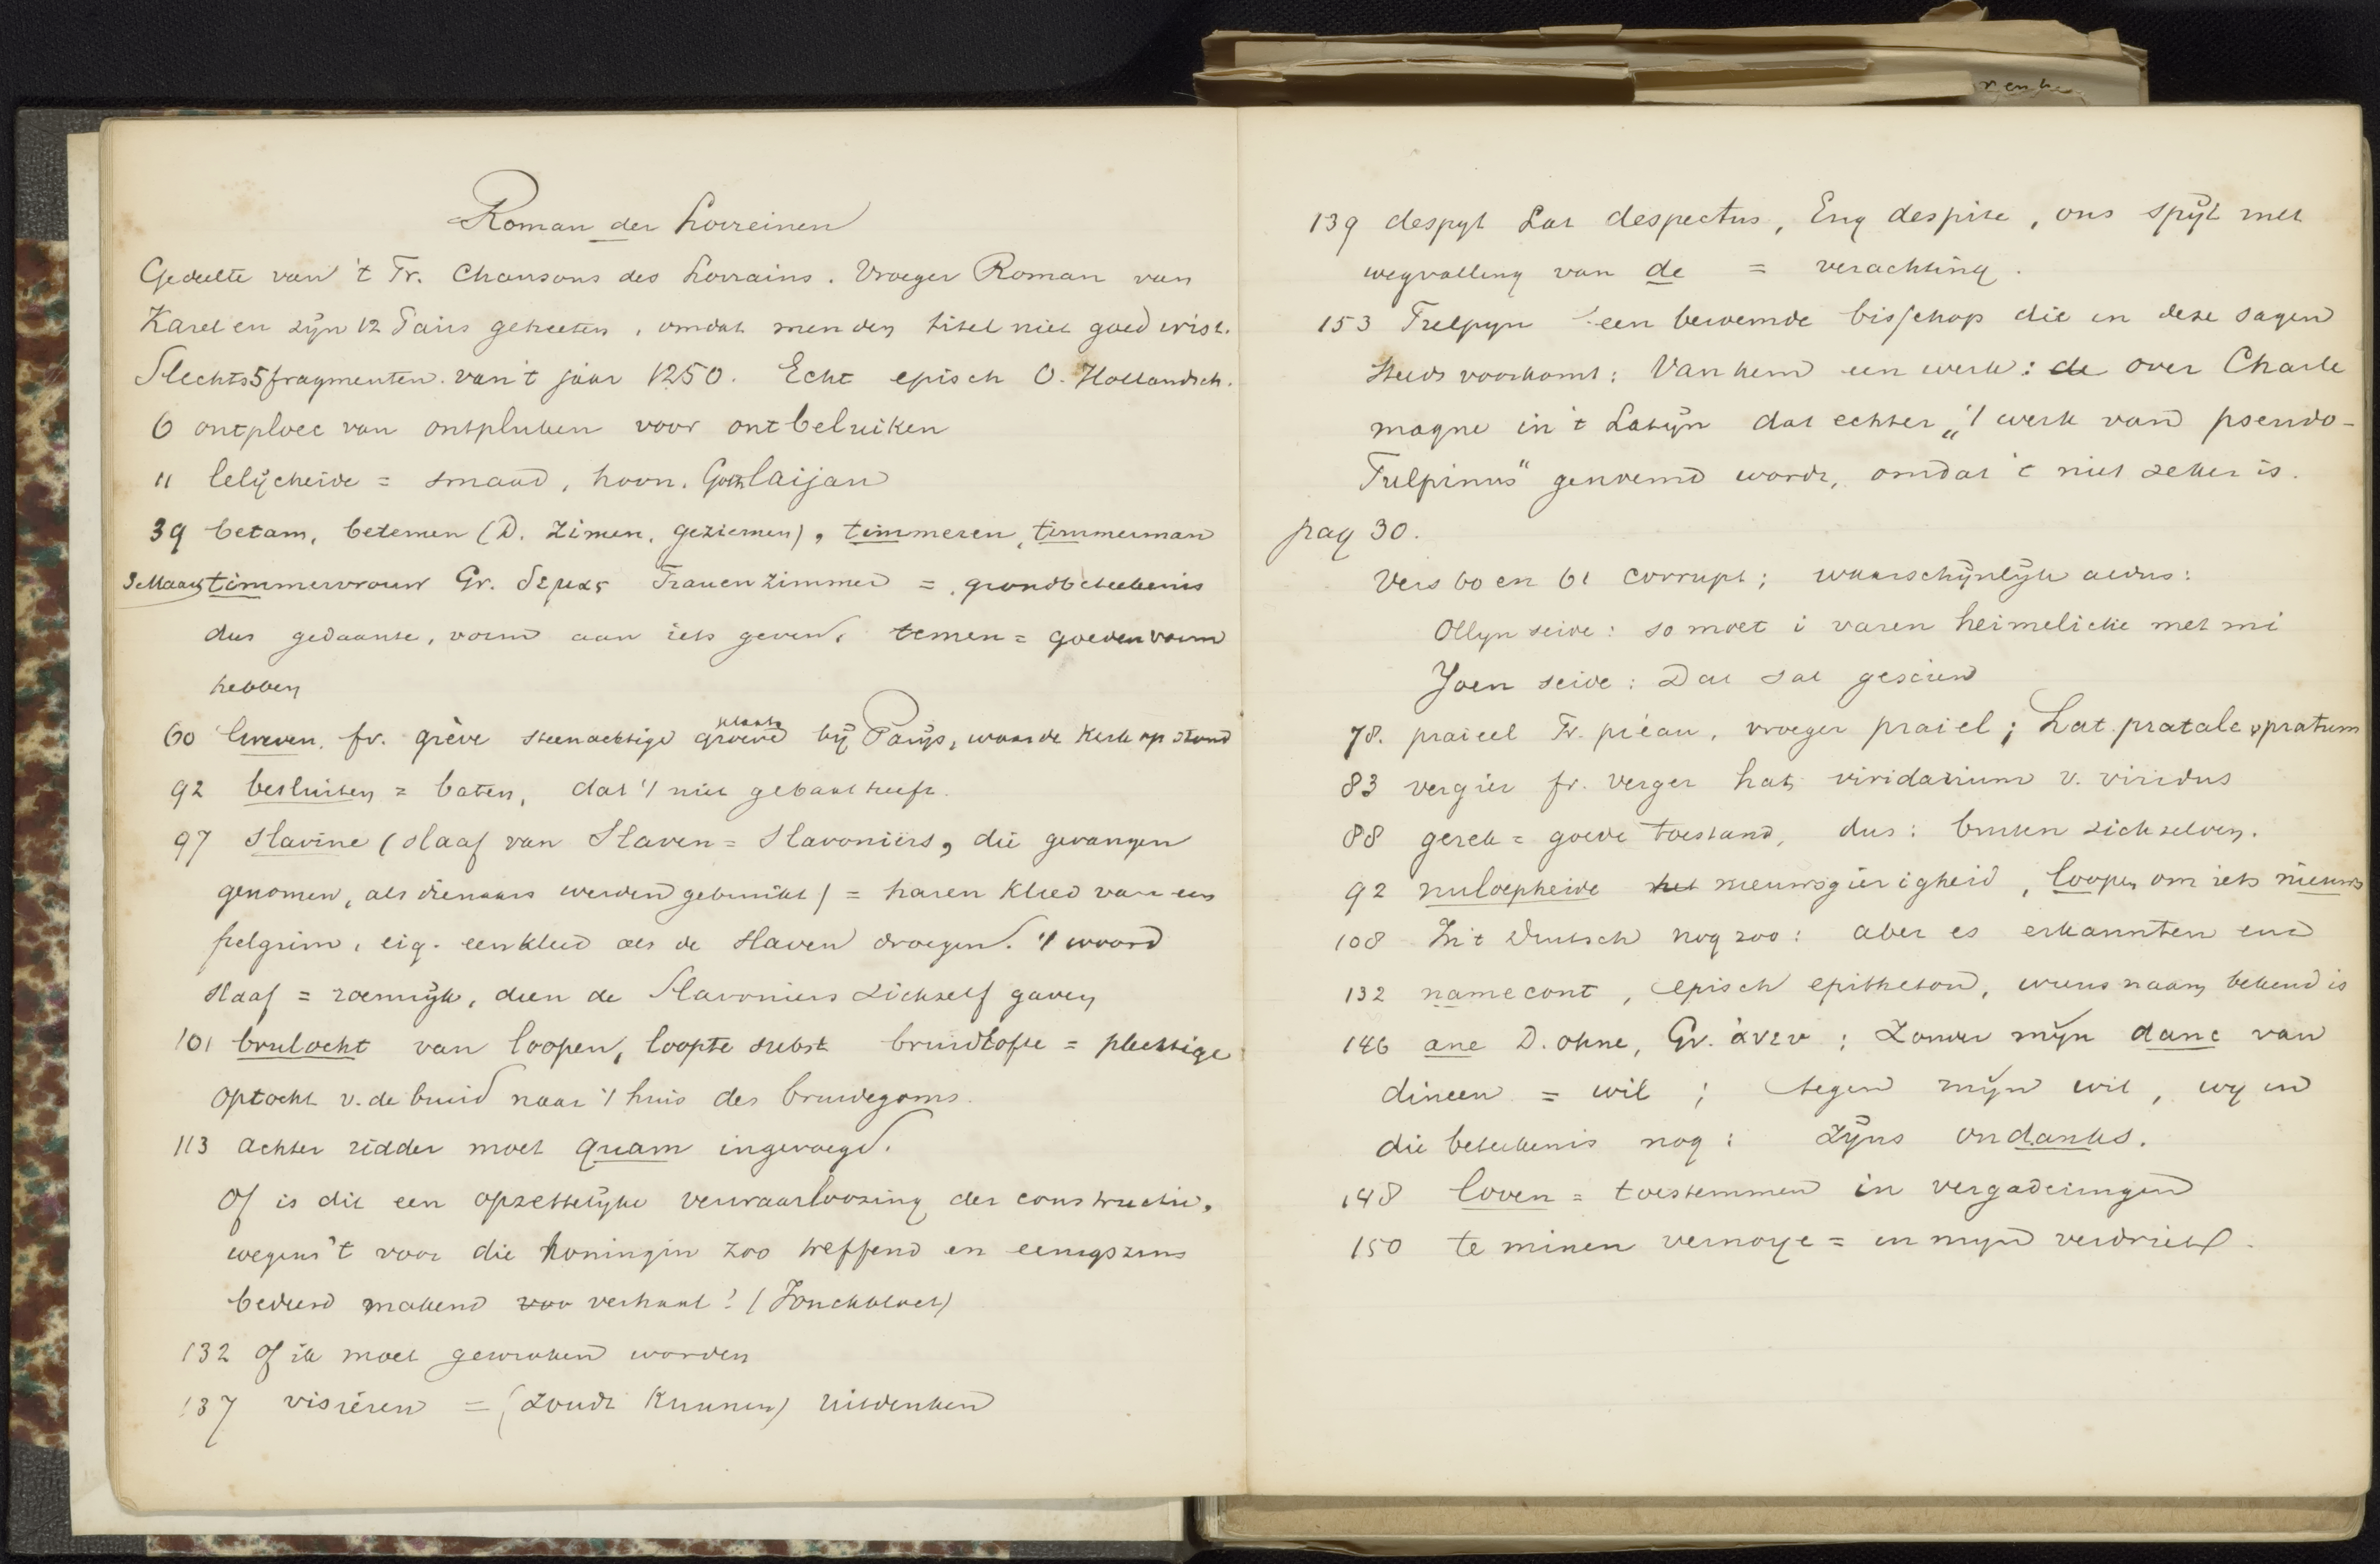 Roman der Lorreinen
Gedeelte van 't Fr. Chansons des Lorrains. Vroeger Roman van
Karel en zijn 12 Pairs geheeten, omdat men den titel niet goed wist.
Slechts 5 fragmenten van 't jaar 1250. Echt episch O. Hollandsch.
6 ontploec van ontpluken voor ontbeluiken
11 lelijcheide = smaad, hoon. Goth laijan
39 betam, betemen (D. zimen, geziemen), timmeren, timmerman
timmervrouw Gr. δεμας Frauenzimmer = grondbeteekenis
dus gedaante, vorm aan iets geven. temen = goeden vorm
hebben
60 Greven. fr. grève steenachtige groeve plaats bij Parijs, waar de Kerk op stond
92 besluiten = baten, dat 't niet gebaat heeft.
97 Slavine (slaaf van Slaven = Slavoniërs, die gevangen
genomen, als dienaars werden gebruikt) = haren kleed van een
pelgrim, eig. een kleed als de Slaven droegen. 't woord
slaaf = roemrijk, dien de Slavoniers zichzelf gaven
101 brulocht van loopen, loopte subst bruidlofte = plechtige
optocht v. de bruid naar 't huis des bruidegoms.
113 achter ridder moet quam ingevoegd.
Of is dit een opzettelijke verwaarloozing der constructie,
wegens 't voor die koningin zoo treffend en eenigszins
bedeesd makend voor verhaal? (Jonckbloet)
132 Of ik moet gewroken worden
137 visieren = (zoudt kunnen) uitdenken
139 despyt Lat despectus, Eng despite, ons spijt met
wegvalling van de = verachting.
153 Tulpyn een beroemde bisschop die in deze sagen
steeds voorkomt: Van hem een werk: de over Charle
magne in 't Latijn dat echter „'t werk van pseudo-
Tulpinus" genoemd wordt, omdat 't niet zeker is.
pag 30.
Vers 60 en 61 corrupt; waarschijnlijk aldus:
Ollyn seide: so moet i varen heimelicke met mi
Yoen seide: Dat sal gescien
78. praieel Fr. préau, vroeger praiel; Lat. pratale v pratum
83 vergier fr. verger Lat. viridarium v. viridus
88 gerek = goede toestand, dus: buiten zichzelven.
92 nuloepheide het nieuwsgierigheid, loopen om iets nieuws
108 In 't Duitsch nog zoo: aber es erkannten end
132 namecont, episch epitheton, wiens naam bekend is
146 ane D. ohne, Gr. ἀνευ; Zonder mijn danc van
dincen = wil; tegen mijn wil, wy in
die beteekenis nog: Zijns ondanks.
148 loven = toestemmen in vergaderingen
150 te minen vernoye = in mijn verdriet.